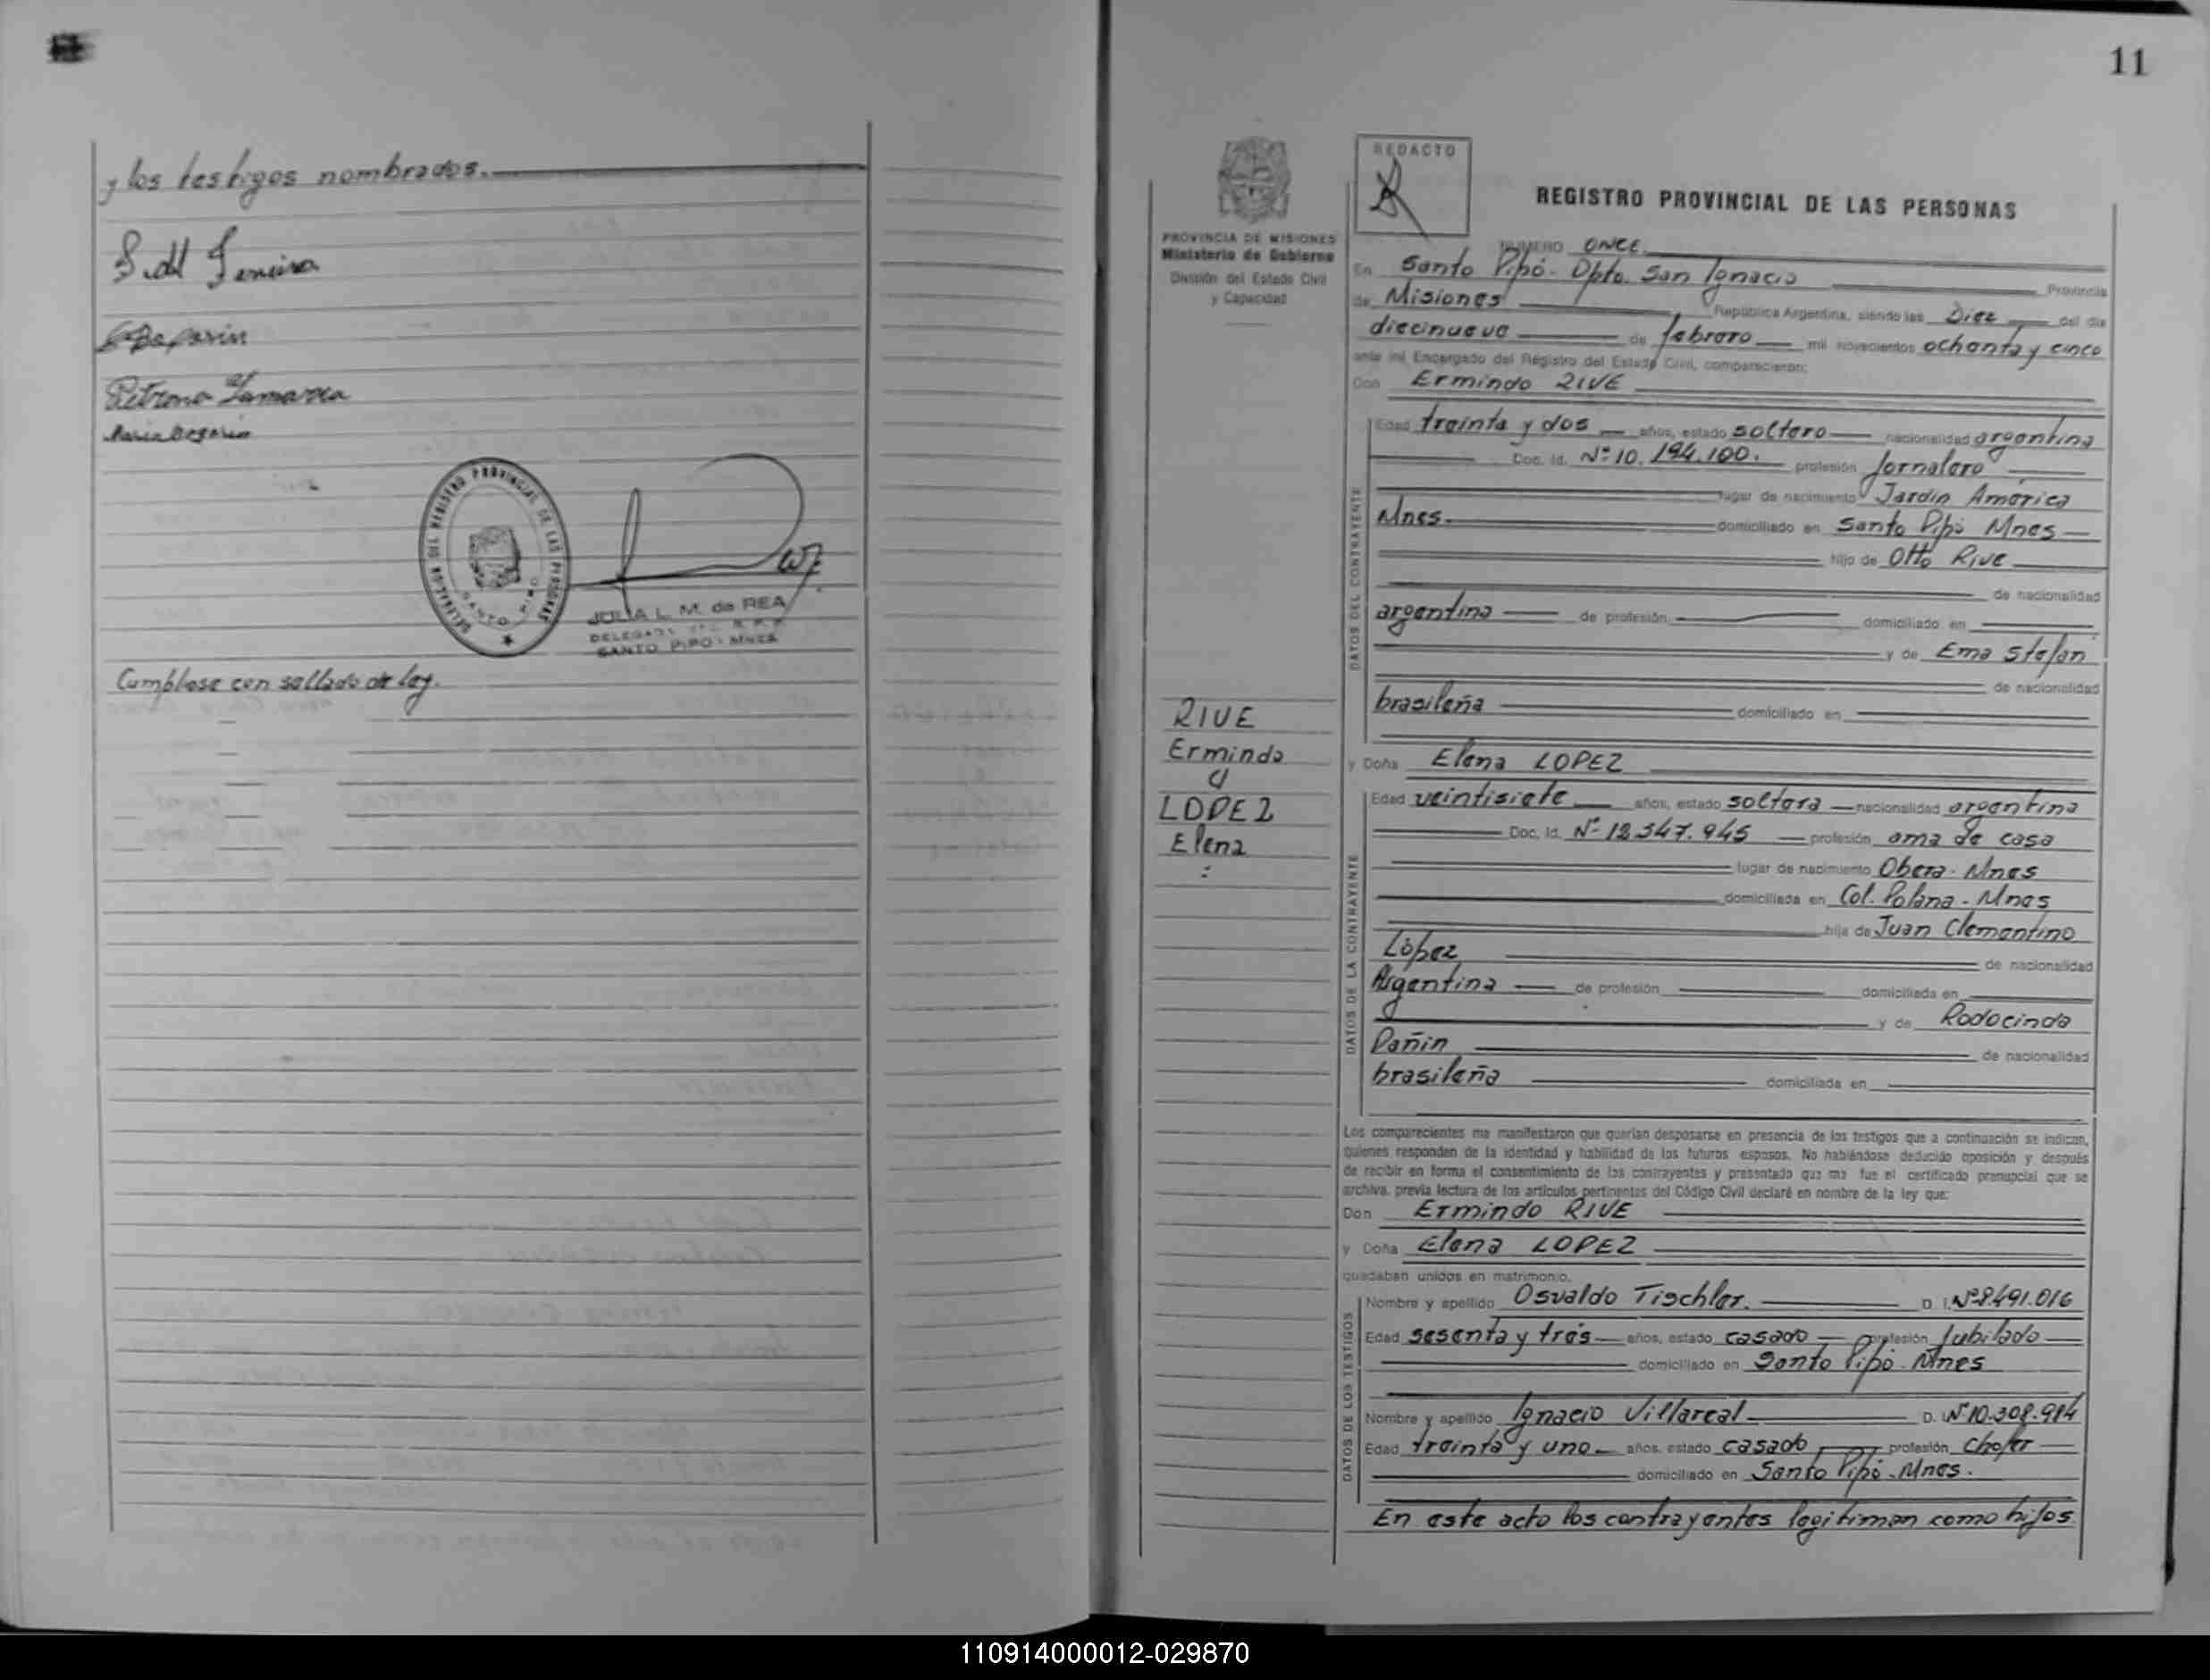 y los testigos nombrados.
Petrona Zamarea
DELEGACION DEL REGISTRO PROVINCIAL DE LAS PERSONAS
SANTO PIPO
JULIA L. M. de REA
DELEGADA
SANTO PIPO - MNES
Cumplase con sellado de ley.
11
PROVINCIA DE MISIONES
Ministerio de Gobierno
División del Estado Civil
y Capacidad
RIVE
Ermindo
y
LOPEZ
Elena
:
REDACTO
REGISTRO PROVINCIAL DE LAS PERSONAS
NUMERO ONCE
En Santo Pipó - Dpto. San Ignacio Provincia
de Misiones República Argentina, siendo las Diez del día
diecinueve de febrero mil novecientos ochenta y cinco
ante mí Encargado del Registro del Estado Civil, comparecieron:
Don Ermindo RIVE
DATOS DEL CONTRAYENTE
Edad treinta y dos años, estado soltero nacionalidad argentina
Doc. Id. Nº 10.194.100. profesión Jornalero
lugar de nacimiento Jardín América
Mnes. domiciliado en Santo Pipó Mnes
hijo de Otto Rive
de nacionalidad
argentina de profesión domiciliado en
y de Ema Stefan
de nacionalidad
brasileña domiciliado en
y Doña Elena LOPEZ
DATOS DE LA CONTRAYENTE
Edad veintisiete años, estado soltera nacionalidad argentina
Doc. Id. Nº profesión ama de casa
lugar de nacimiento Obera - Mnes
domiciliada en Col. Polana - Mnes
hija de Juan Clementino
López de nacionalidad
Argentina de profesión domiciliada en
y de Rodocinda
Pañin de nacionalidad
brasileña domiciliada en
Los comparecientes me manifestaron que querían desposarse en presencia de los testigos que a continuación se indican,
quienes responden de la identidad y habilidad de los futuros esposos. No habiéndose deducido oposición y después
de recibir en forma el consentimiento de los contrayentes y presentado que me fue el certificado prenupcial que se
archiva, previa lectura de los artículos pertinentes del Código Civil declaré en nombre de la ley que:
Don Ermindo RIVE
y Doña Elena LOPEZ
quedaban unidos en matrimonio.
DATOS DE LOS TESTIGOS
Nombre y apellido Osvaldo Tischler. D. I. Nº 8.491.016
Edad sesenta y tres años, estado casado profesión Jubilado
domiciliado en Santo Pipó - Mnes
Nombre y apellido Ignacio Villareal D. I. Nº 10.308.984
Edad treinta y uno años, estado casado profesión chofer
domiciliado en Santo Pipó - Mnes.
En este acto los contrayentes legitiman como hijos
110914000012-029870